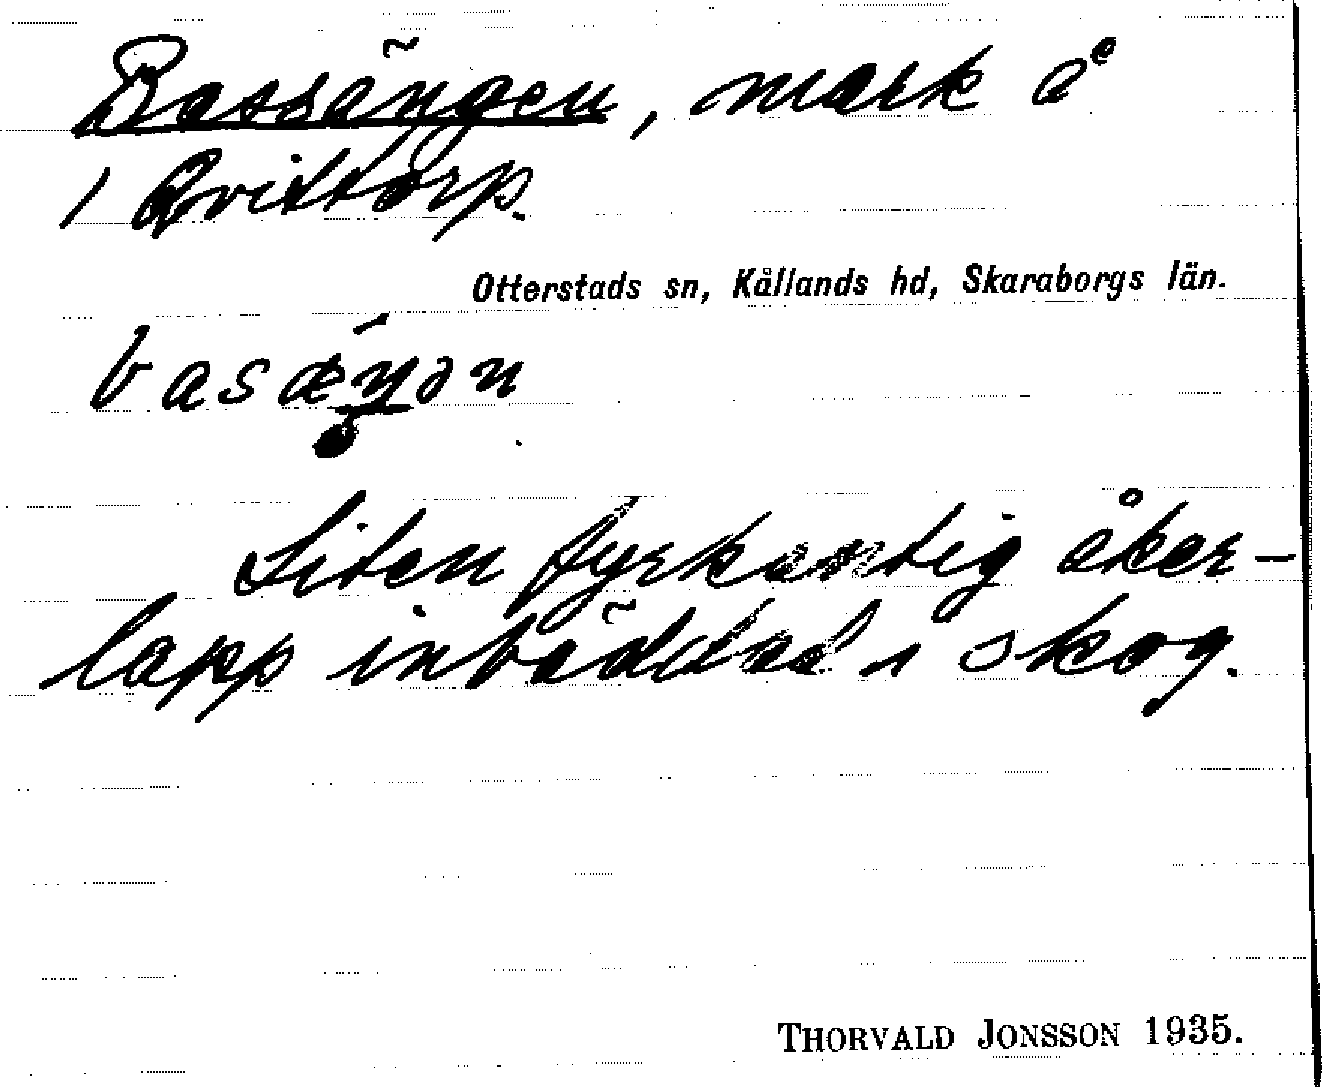 Bassängen, mark å
1 Qvittorp.
Otterstads sn, Kållands hd, Skaraborgs län.
basǽŋən
Liten fyrkantig åker-
lapp inbäddad i skog.
THORVALD JONSSON 1935.